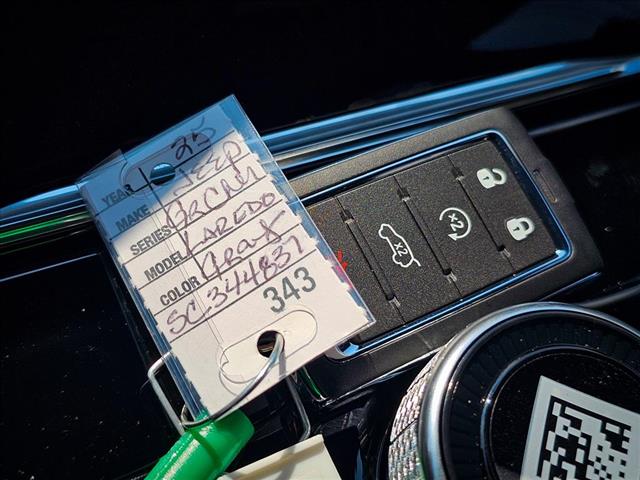 YEAR 25
MAKE JEEP
SERIES GRCM
MODEL LAREDO
COLOR Gray
SC344837
343
X2
X2